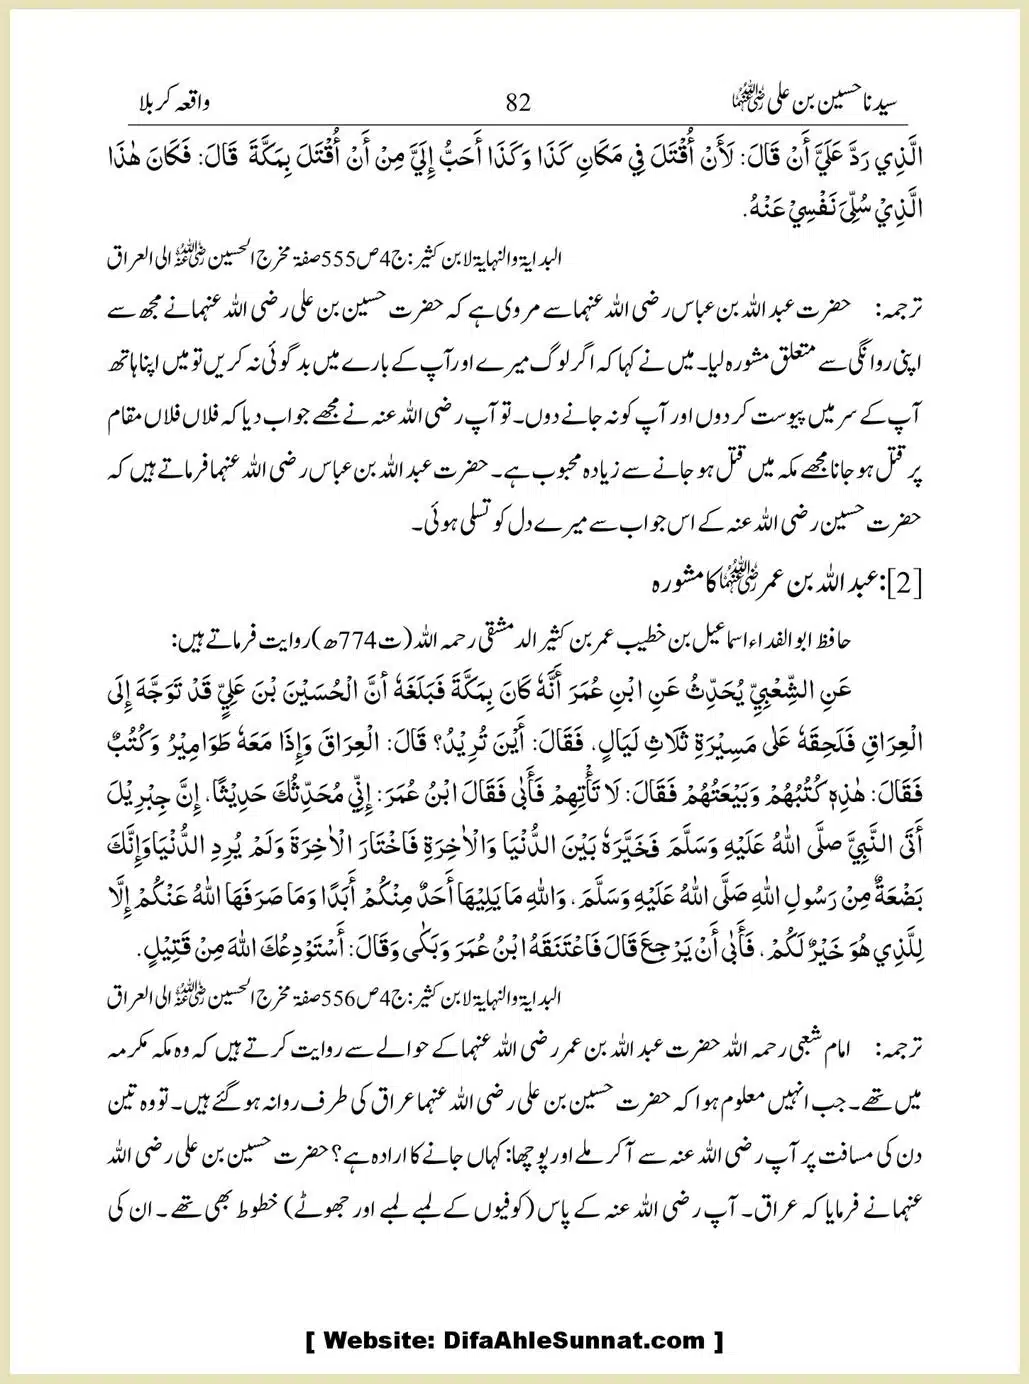 سیدنا حسین بن علی رضی اللہ عنہما 82 واقعہ کربلا
الَّذِي رَدَّ عَلَيَّ أَنْ قَالَ: لَأَنْ أُقْتَلَ فِي مَكَانِ كَذَا وَكَذَا أَحَبُّ إِلَيَّ مِنْ أَنْ أُقْتَلَ بِمَكَّةَ قَالَ: فَكَانَ هٰذَا
الَّذِيْ سُلِّيَ نَفْسِيْ عَنْهُ.
البدایۃ والنہایۃ لابن کثیر: ج4 ص555 صفۃ مخرج الحسین رضی اللہ عنہ الی العراق
ترجمہ: حضرت عبد اللہ بن عباس رضی اللہ عنہما سے مروی ہے کہ حضرت حسین بن علی رضی اللہ عنہما نے مجھ سے
اپنی روانگی سے متعلق مشورہ لیا۔ میں نے کہا کہ اگر لوگ میرے اور آپ کے بارے میں بد گوئی نہ کریں تو میں اپنا ہاتھ
آپ کے سر میں پیوست کر دوں اور آپ کو نہ جانے دوں۔ تو آپ رضی اللہ عنہ نے مجھے جواب دیا کہ فلاں فلاں مقام
پر قتل ہو جانا مجھے مکہ میں قتل ہو جانے سے زیادہ محبوب ہے۔ حضرت عبد اللہ بن عباس رضی اللہ عنہما فرماتے ہیں کہ
حضرت حسین رضی اللہ عنہ کے اس جواب سے میرے دل کو تسلی ہوئی۔
[2]: عبد اللہ بن عمر رضی اللہ عنہما کا مشورہ
حافظ ابو الفداء اسماعیل بن خطیب عمر بن کثیر الدمشقی رحمہ اللہ (ت774ھ) روایت فرماتے ہیں:
عَنِ الشِّعْبِيِّ يُحَدِّثُ عَنِ ابْنِ عُمَرَ أَنَّهٗ كَانَ بِمَكَّةَ فَبَلَغَهٗ أَنَّ الْحُسَيْنَ بْنَ عَلِيٍّ قَدْ تَوَجَّهَ إِلَى
الْعِرَاقِ فَلَحِقَهٗ عَلٰى مَسِيْرَةِ ثَلَاثِ لَيَالٍ، فَقَالَ: أَيْنَ تُرِيْدُ؟ قَالَ: الْعِرَاقَ وَإِذَا مَعَهٗ طَوَامِيْرُ وَكُتُبٌ
فَقَالَ: هٰذِهٖ كُتُبُهُمْ وَبَيْعَتُهُمْ فَقَالَ: لَا تَأْتِهِمْ فَأَبٰى فَقَالَ ابْنُ عُمَرَ: إِنِّيْ مُحَدِّثُكَ حَدِيْثًا، إِنَّ جِبْرِيْلَ
أَتَى النَّبِيَّ صلَّى اللهُ عَلَيْهِ وَسَلَّمَ فَخَيَّرَهٗ بَيْنَ الدُّنْيَا وَالْاٰخِرَةِ فَاخْتَارَ الْاٰخِرَةَ وَلَمْ يُرِدِ الدُّنْيَا وَإِنَّكَ
بَضْعَةٌ مِنْ رَسُولِ اللهِ صَلَّى اللهُ عَلَيْهِ وَسَلَّمَ، وَاللهِ مَا يَلِيْهَا أَحَدٌ مِنْكُمْ أَبَدًا وَمَا صَرَفَهَا اللهُ عَنْكُمْ إِلَّا
لِلَّذِي هُوَ خَيْرٌ لَكُمْ، فَأَبٰى أَنْ يَرْجِعَ قَالَ فَاعْتَنَقَهُ ابْنُ عُمَرَ وَبَكٰى وَقَالَ: أَسْتَوْدِعُكَ اللهَ مِنْ قَتِيْلٍ.
البدایۃ والنہایۃ لابن کثیر: ج4 ص556 صفۃ مخرج الحسین رضی اللہ عنہ الی العراق
ترجمہ: امام شعبی رحمہ اللہ حضرت عبد اللہ بن عمر رضی اللہ عنہما کے حوالے سے روایت کرتے ہیں کہ وہ مکہ مکرمہ
میں تھے۔ جب انہیں معلوم ہوا کہ حضرت حسین بن علی رضی اللہ عنہما عراق کی طرف روانہ ہو گئے ہیں۔ تو وہ تین
دن کی مسافت پر آپ رضی اللہ عنہ سے آکر ملے اور پوچھا: کہاں جانے کا ارادہ ہے؟ حضرت حسین بن علی رضی اللہ
عنہما نے فرمایا کہ عراق۔ آپ رضی اللہ عنہ کے پاس (کوفیوں کے لمبے لمبے اور جھوٹے) خطوط بھی تھے۔ ان کی
[ Website: DifaAhleSunnat.com ]